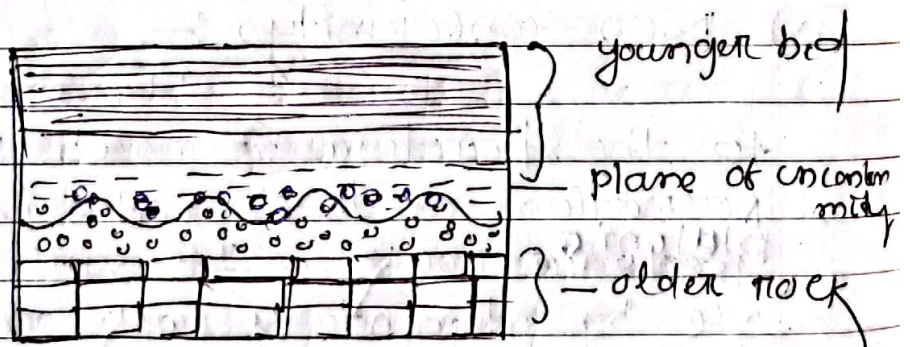 younger bed
plane of unconfor
mity
older rock